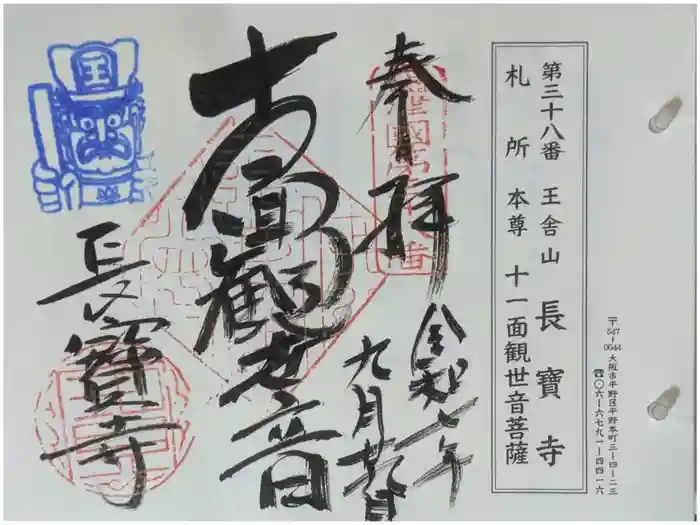 第三十八番 王舎山 長寶寺
札所本尊 十一面観世音菩薩
〒547-0044 大阪市平野区平野本町三-四-二三
☎〇六-六七九一-四四一六
奉拝
令和七年
九月廿九日
十一面観世音
長寶寺
王